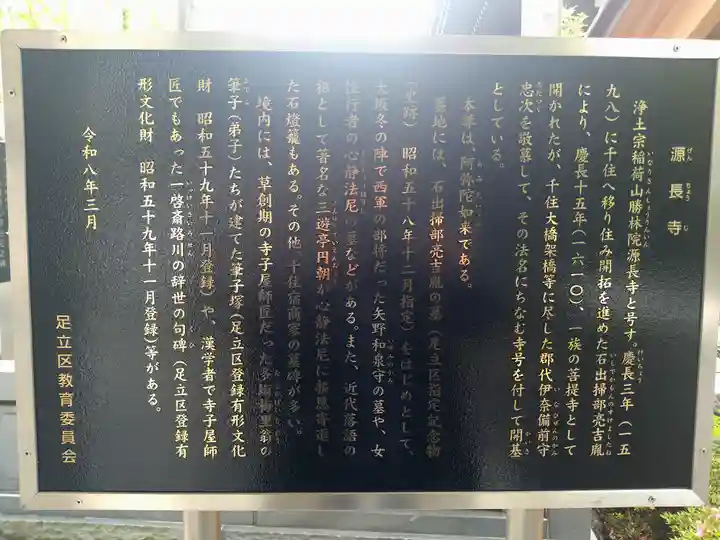 源長寺
げんちょうじ
浄土宗稲荷山勝林院源長寺と号す。慶長三年(一五
九八)に千住へ移り住み開拓を進めた石出掃部亮吉胤
により、慶長十五年(一六一〇)、一族の菩提寺として
開かれたが、千住大橋架橋等に尽した郡代伊奈備前守
忠次を敬慕して、その法名にちなむ寺号を付して開基
としている。
本尊は、阿弥陀如来である。
墓地には、石出掃部亮吉胤の墓(足立区指定記念物
(史跡) 昭和五十八年十二月指定)をはじめとして、
大坂冬の陣で西軍の部将だった矢野和泉守の墓や、女
性行者の心静法尼の墓などがある。また、近代落語の
祖として著名な三遊亭円朝が心静法尼に報恩寄進し
た石燈籠もある。その他、千住宿商家の墓碑が多い。
境内には、草創期の寺子屋師匠だった
翁の
筆子(弟子)たちが建てた筆子塚(足立区登録有形文化
財 昭和五十九年十一月登録)や、漢学者で寺子屋師
匠でもあった一啓斎路川の辞世の句碑(足立区登録有
形文化財 昭和五十九年十一月登録)等がある。
令和八年三月
足立区教育委員会